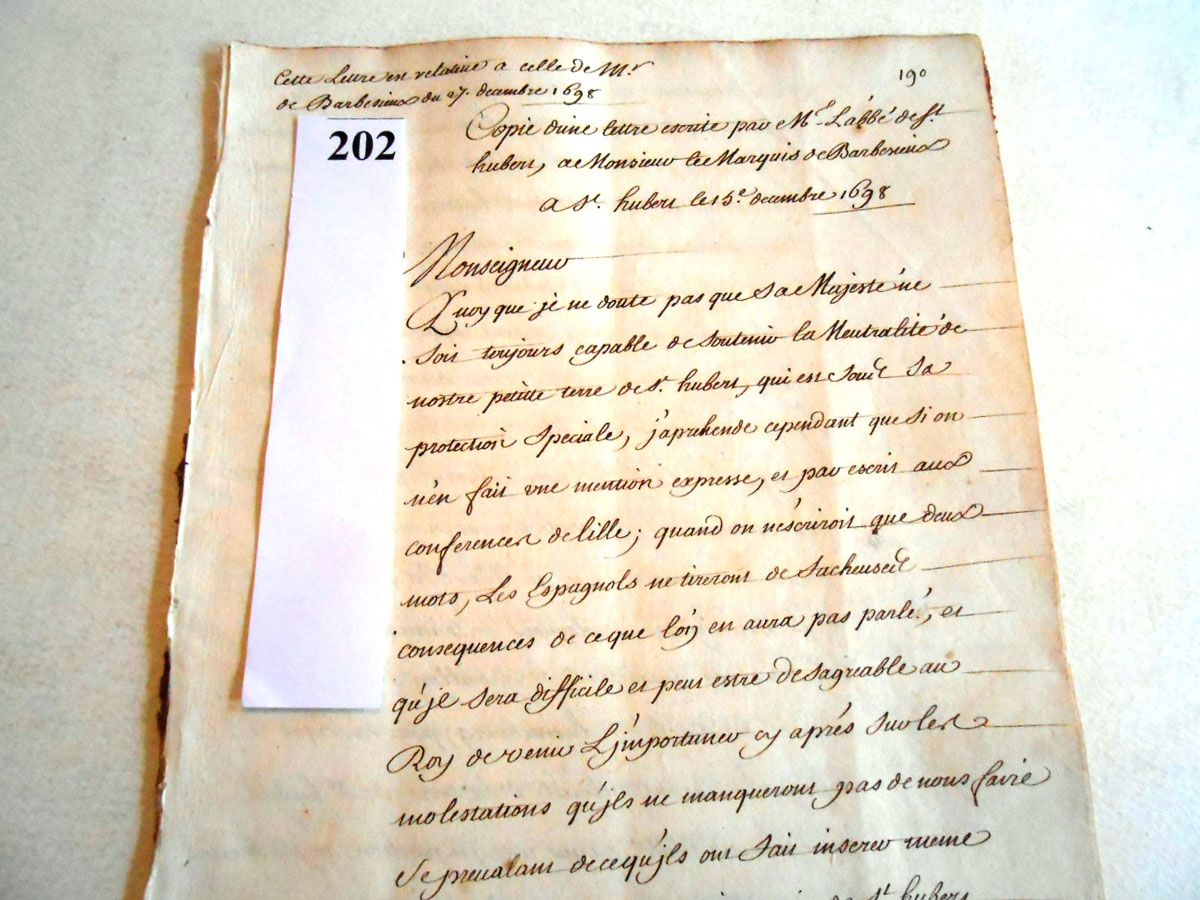 Cette Lettre en relative a celle de Mr
de Barbesieux du 27. decembre 1698
190
202
Copie d'une lettre escrite par Mr. L'abbé de St.
hubert, a Monsieur le Marquis de Barbesieux
a St. hubert le 15e. decembre 1698
Monseigneur
Quoy que je ne doute pas que Sa Majesté ne
soit toujours capable de soutenir la Neutralité de
nostre petitte terre de St. hubert, qui est sout sa
protection speciale, j'aprehende cependant que si on
n'en fait une mention expresse, et par escrit aux
conferences de lille; quand on n'escriroit que deux
mots, Les Espagnols ne tireront de facheuset
consequences de ce que l'on en aura pas parlé, et
qu'jl sera difficile et peut estre desagreable au
Roy de venir L'jmportuner cy aprés sur les
molestations qu'jls ne manqueront pas de nous faire
se prevalant de ce qu'jls ont fait inserer meme
de St hubert